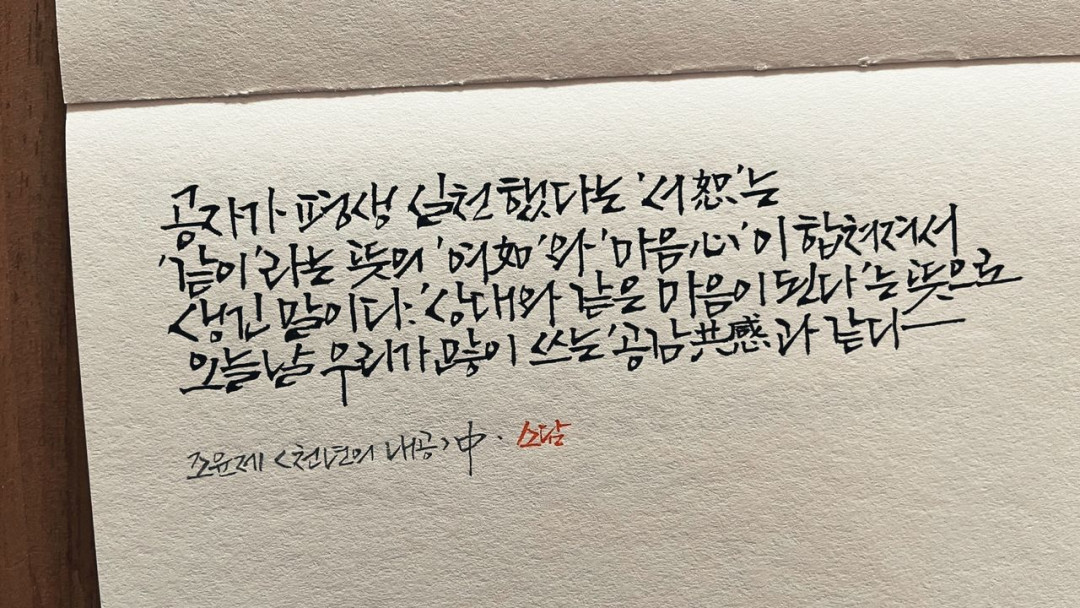 공자가 평생 실천했다는 '서恕'는
'같이'라는 뜻의 '여如'와 '마음心'이 합쳐져서
생긴 말이다. '상대와 같은 마음이 된다'는 뜻으로
오늘날 우리가 많이 쓰는 '공감共感과 같다
조윤제 <천년의 내공> 中. 소담